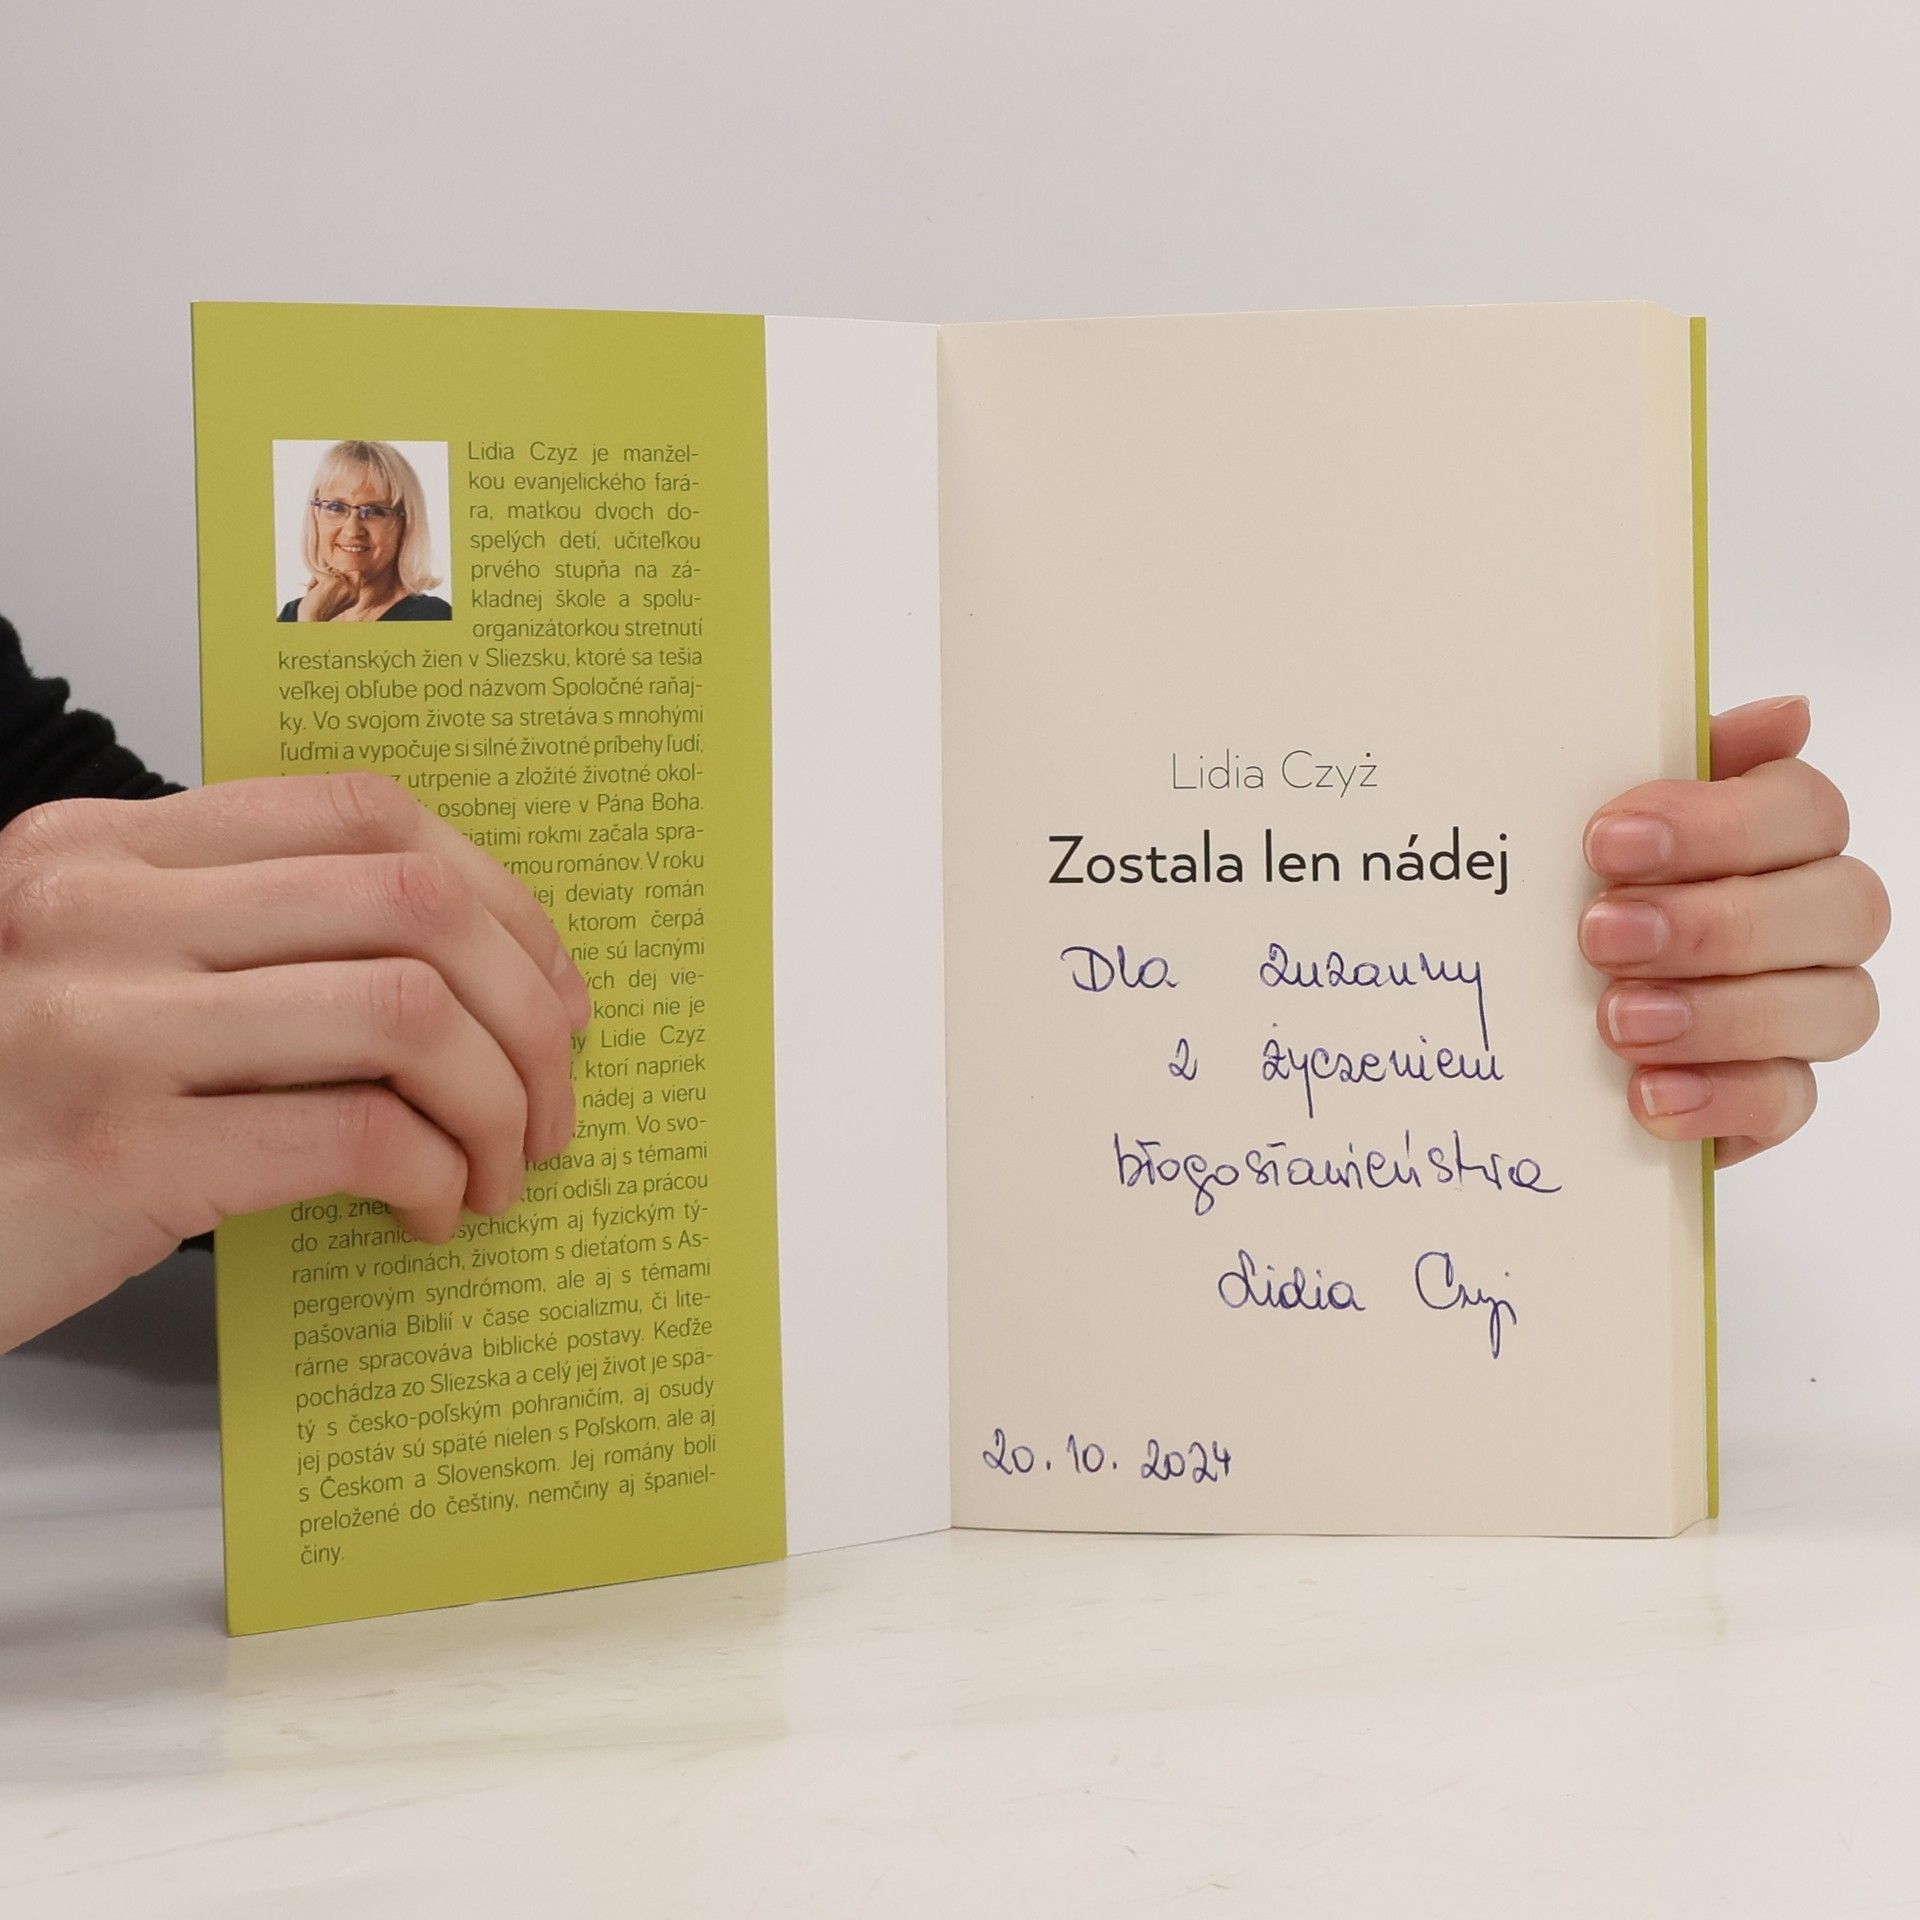 Lidia Czyż je manžel-
kou evanjelického fará-
ra, matkou dvoch do-
spelých detí, učiteľkou
prvého stupňa na zá-
kladnej škole a spolu-
organizátorkou stretnutí
kresťanských žien v Sliezsku, ktoré sa tešia
veľkej obľube pod názvom Spoločné raňaj-
ky. Vo svojom živote sa stretáva s mnohými
ľuďmi a vypočuje si silné životné príbehy ľudí,
utrpenie a zložité životné okol-
osobnej viere v Pána Boha.
rokmi začala spra-
románov. V roku
jej deviaty román
ktorom čerpá
nie sú lacnými
dej vie-
konci nie je
Lidie Czyż
ktorí napriek
nádej a vieru
Vo svo-
aj s témami
odišli za prácou
drog,
do týraním
do psychickým aj fyzickým tý-
raním v rodinách, životom s dieťaťom s As-
pergerovým syndrómom, ale aj s témami
pašovania Biblií v čase socializmu, či lite-
rárne spracováva biblické postavy. Keďže
pochádza zo Sliezska a celý jej život je spä-
tý s česko-poľským pohraničím, aj osudy
jej postáv sú späté nielen s Poľskom, ale aj
s Českom a Slovenskom. Jej romány boli
preložené do češtiny, nemčiny aj španiel-
činy.
Lidia Czyż
Zostala len nádej
Dla Zuzanny
z życzeniem
błogosławieństwa
Lidia Czyż
20.10.2024